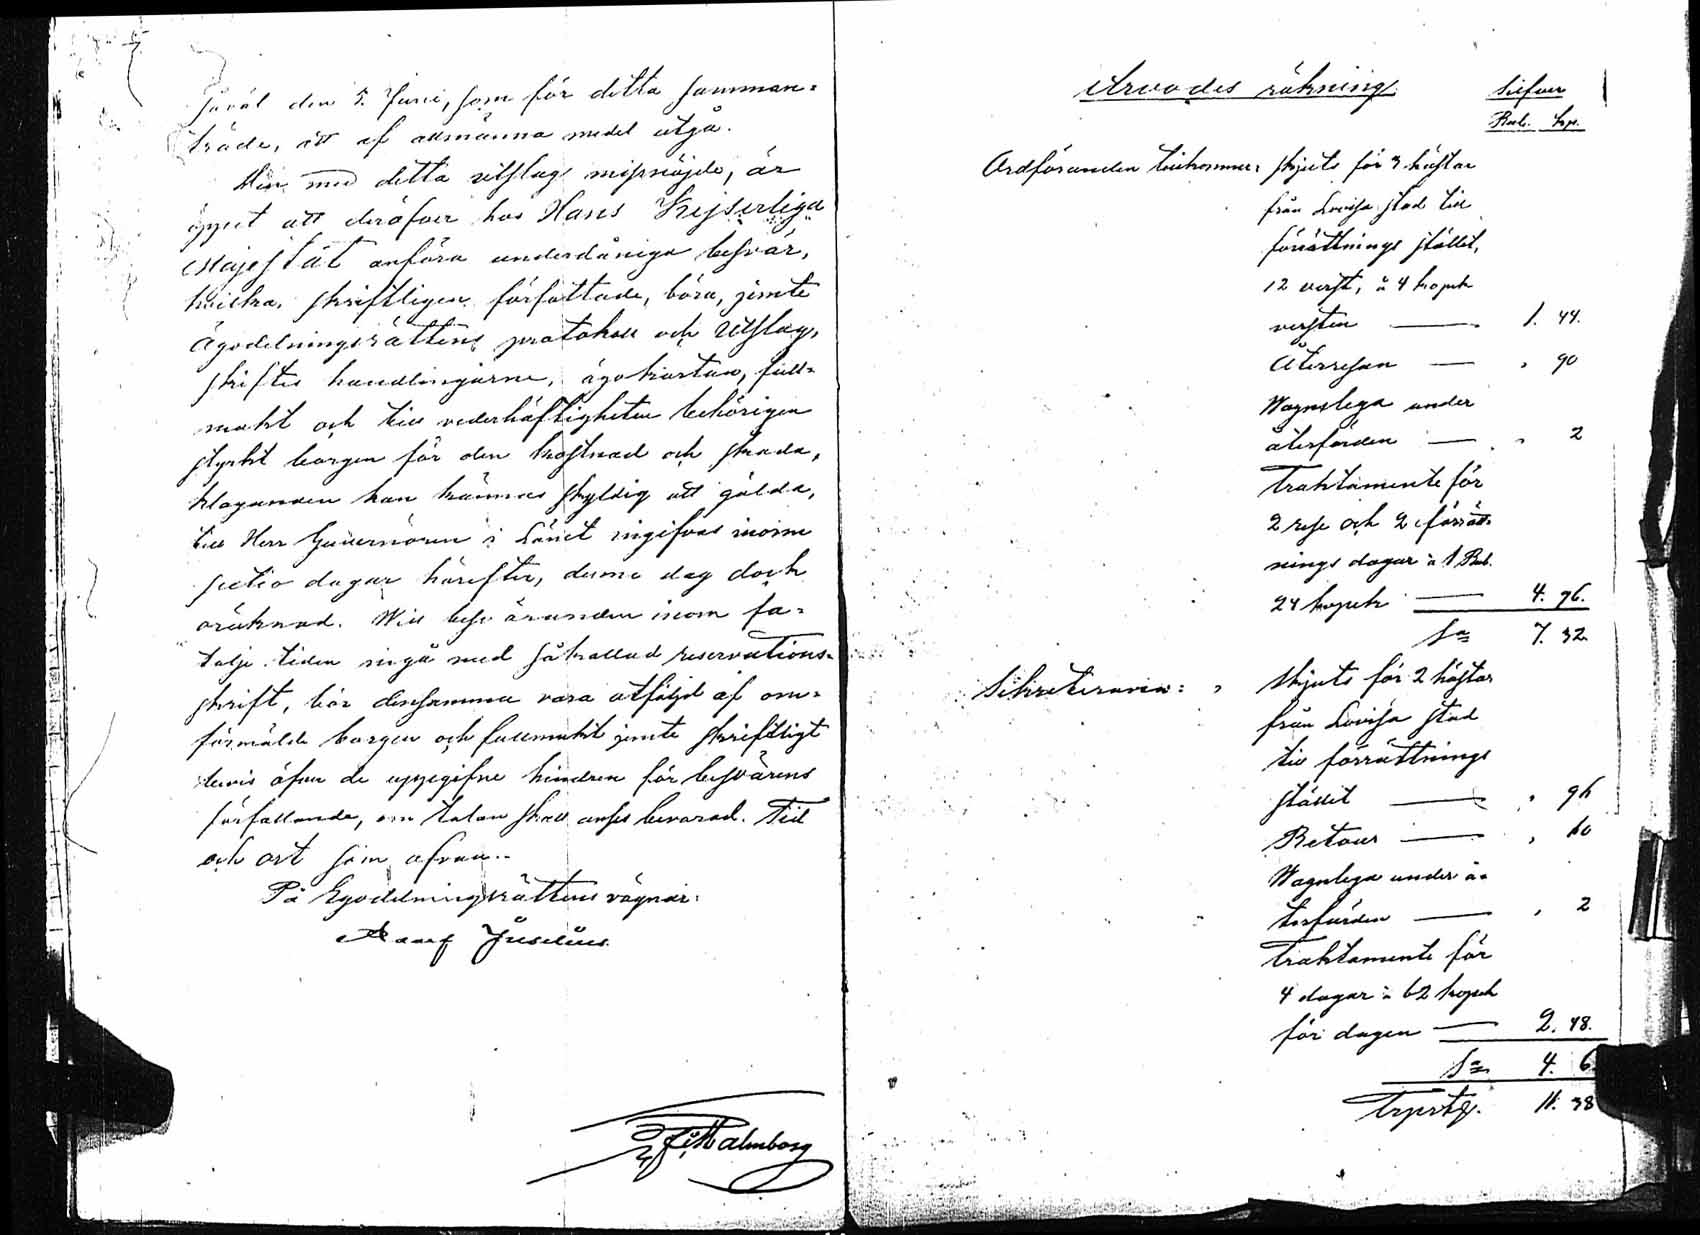 såväl den 5. Juni, som för detta samman=
träde, att af allmänna medel utgå.
Den med detta utslag missnöjde, är
öppet att deröfver hos Hans Kejserliga
Majestät anföra underdåniga besvär,
hvilka, skriftligen författade, böra, jemte
Ägodelningsrättens protokoll och Utslag,
skiftes handlingarne, ägokartan, full=
makt och till vederhäftigheten behörigen
styrkt borgen för den kostnad och skada,
klaganden kan kännas skyldig att gälda,
till Herr Guvernören i Länet ingifvas inom
sextio dagar härefter, denna dag dock
oräknad. Will besväranden inom fa=
talje tiden ingå med så kallad reservations=
skrift, bör densamma vara åtföljd af om=
förmälde borgen och fullmakt jemte skriftligt
bevis öfver de uppgifne hindren för besvärens
författande, om talan skall anses bevarad. Tid
och ort som ofvan.
På Egodelningsrättens vägnar:
Adolf Juselius.
Malmborg
Arvodes räkning.
Silfver
Rub. kop.
Ordföranden tillkommer: skjuts för 3 hästar
från Lovisa stad till
förrättnings stället,
12 verst, à 4 kopek
versten — 1. 44.
Återresan — " 90
Wagnslega under
återfärden — " 2
Traktamente för
2 rese och 2 förrätt=
nings dagar à 1 Rub.
24 kopek — 4. 96.
Sa 7. 32.
Sekreteraren: " Skjuts för 2 hästar
från Lovisa stad
till förrättnings
stället — " 96
Retour — " 60
Wagnlega under å=
terfärden — " 2
Traktamente för
4 dagar à 62 kopek
för dagen — 2. 48.
Sa 4. 6
Trprtg. 11. 38